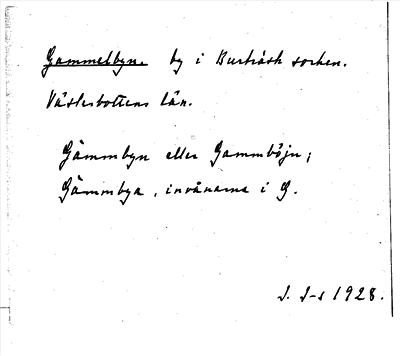 Gammelbyn. by i Burträsk socken.
Västerbottens län.
Gämmbyn eller Gammböjn;
Gämmbya, invånarna i G.
J. J-s 1928.